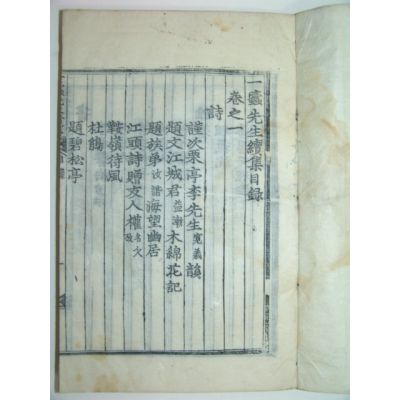 一蠹先生續集目錄
卷之一
詩
謹次栗亭李先生寬義韻
題文江城君益漸木綿花記
題族弟汝諧海望幽居
江頭詩贈友人權
鞍嶺待風
杜鵑
題碧松亭